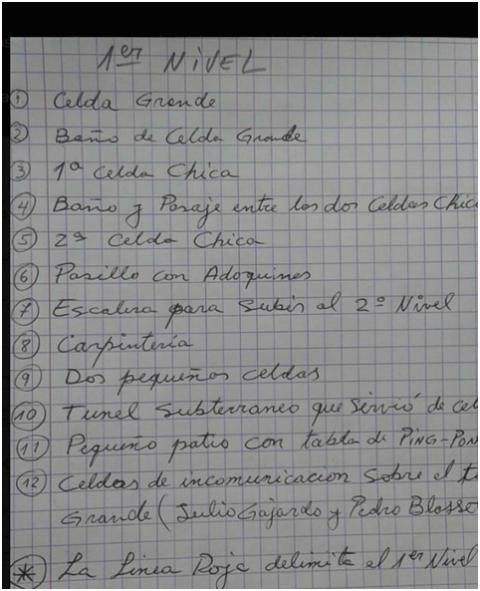 1er NIVEL
① Celda Grande
② Baño de Celda Grande
③ 1ª Celda Chica
④ Baño y Pasaje entre las dos Celdas Chic
⑤ 2ª Celda Chica
⑥ Pasillo con Adoquines
⑦ Escalera para Subir al 2º Nivel
⑧ Carpintería
⑨ Dos pequeñas celdas
⑩ Tunel Subterraneo que Sirvió de cel
⑪ Pequeño patio con tabla de PING-PON
⑫ Celdas de incomunicacion Sobre el t
Grande (Julio Gajardo y Pedro Blosse
* La Linea Roja delimita el 1er Nivel